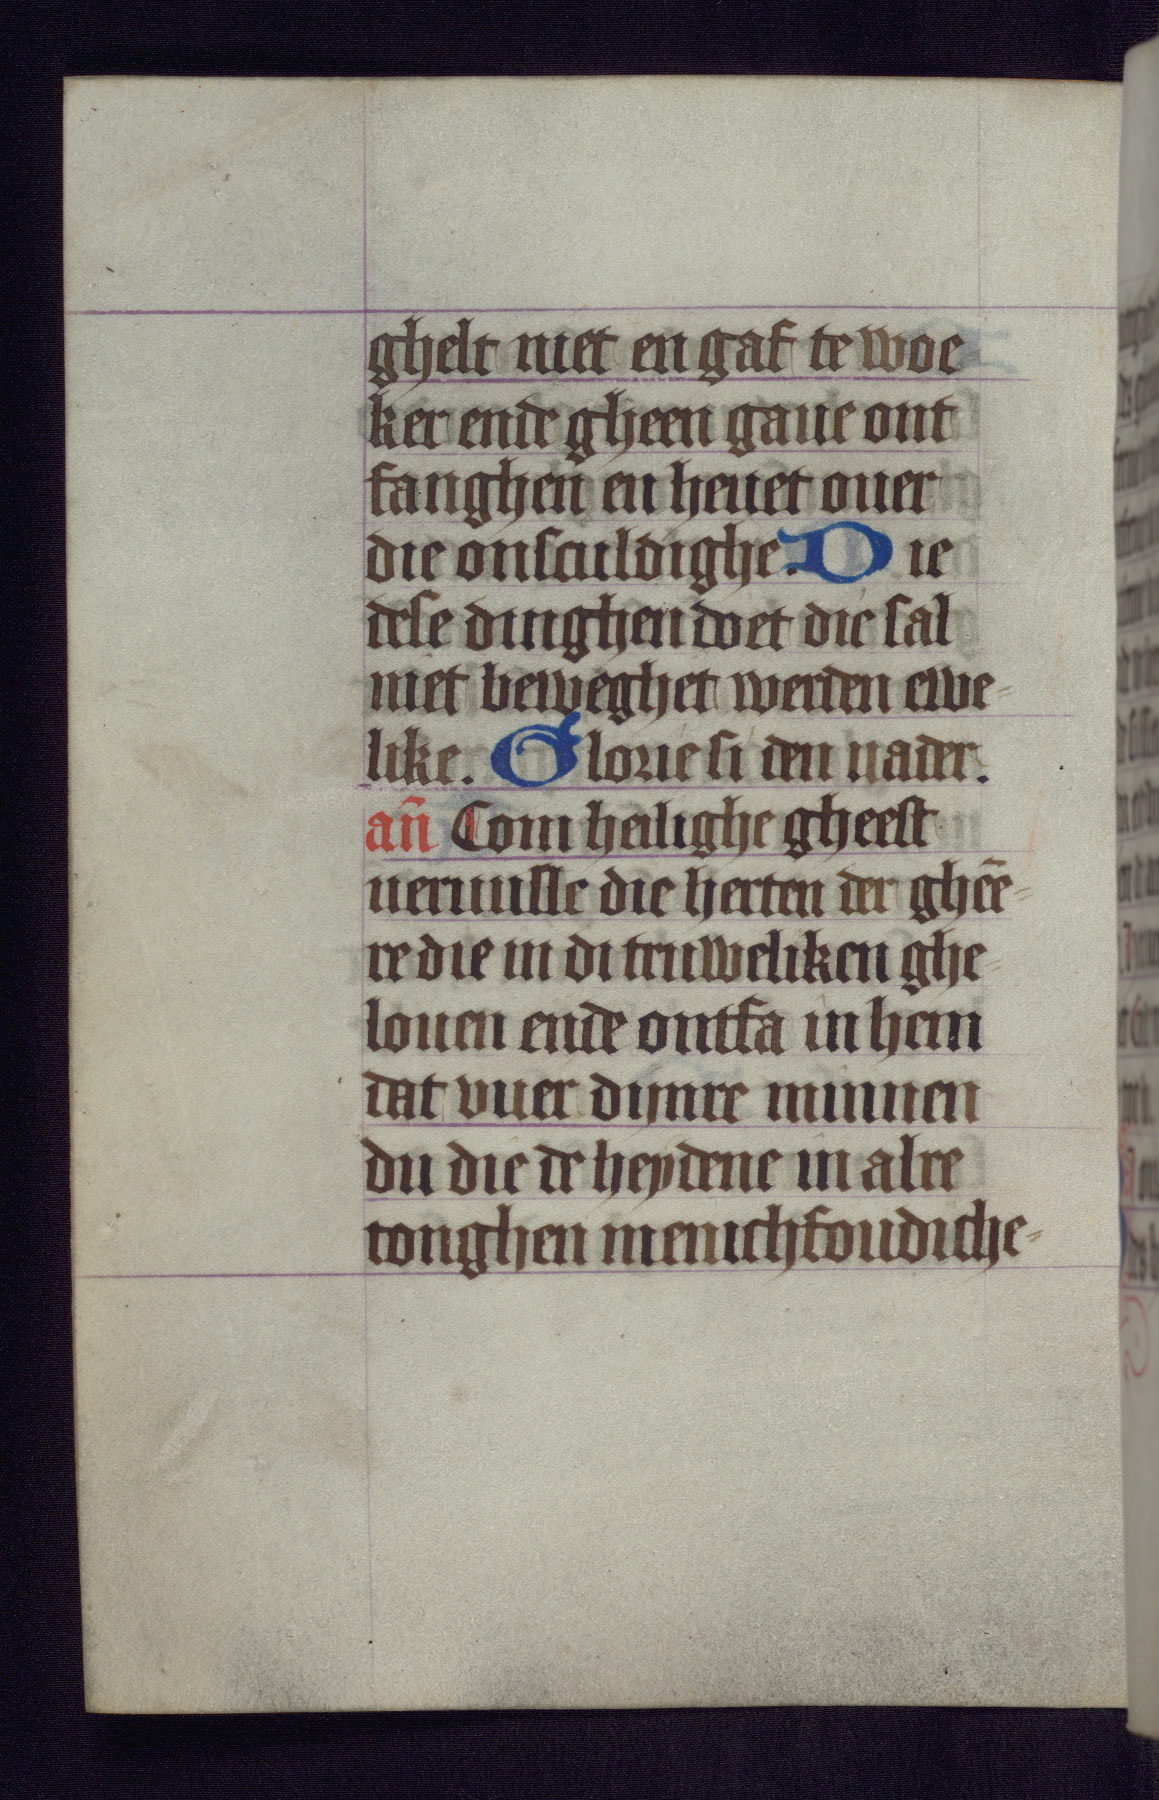 ghelt niet en gaf te woe
ker ende gheen gaue ont
fanghen en heuet ouer
die onsculdighe. Die
dese dinghen doet die sal
niet beweghet werden ewe-
like. Glorie si den uader.
an̄ Com heilighe gheest
ueruulle die herten der ghēe-
re die in di truweliken ghe-
louen ende ontfa in hem
dat vuer dijnre minnen
du die de heydene in alre
tonghen menichfoudiche-